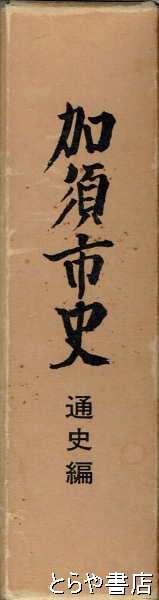 加須市史
通史編
とらや書店